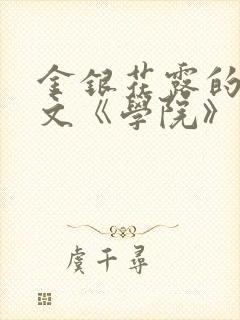 金銀花露的
文《學院》
虞千尋